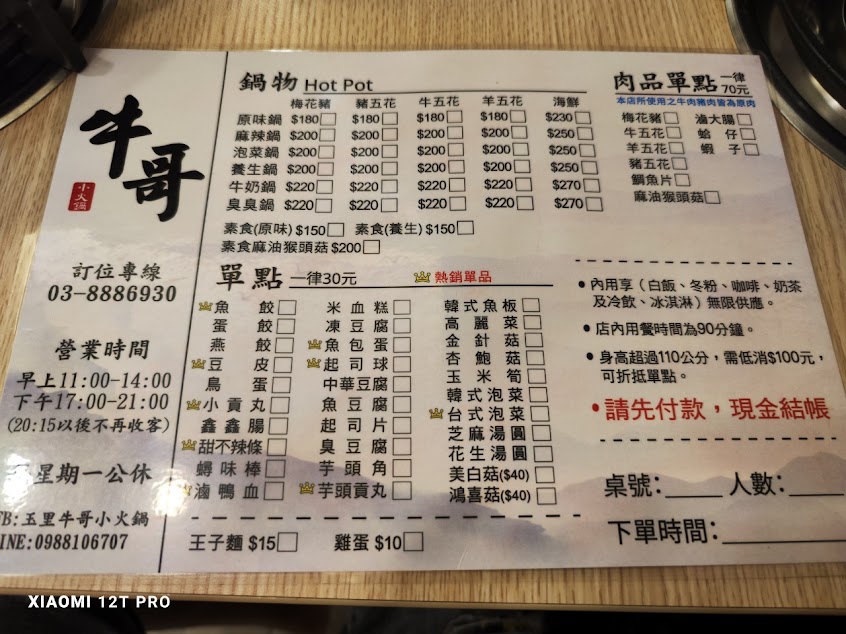 牛哥
小火鍋
訂位專線
03-8886930
營業時間
早上11:00-14:00
下午17:00-21:00
(20:15以後不再收客)
星期一公休
FB:玉里牛哥小火鍋
LINE:0988106707
鍋物 Hot Pot
梅花豬 豬五花 牛五花 羊五花 海鮮
原味鍋 $180 $180 $180 $180 $230
麻辣鍋 $200 $200 $200 $200 $250
泡菜鍋 $200 $200 $200 $200 $250
養生鍋 $200 $200 $200 $200 $250
牛奶鍋 $220 $220 $220 $220 $270
臭臭鍋 $220 $220 $220 $220 $270
素食(原味) $150 素食(養生) $150
素食麻油猴頭菇 $200
單點 一律30元 熱銷單品
魚餃 米血糕 韓式魚板
蛋餃 凍豆腐 高麗菜
燕餃 魚包蛋 金針菇
豆皮 起司球 杏鮑菇
鳥蛋 中華豆腐 玉米筍
小貢丸 魚豆腐 韓式泡菜
鑫鑫腸 起司片 台式泡菜
甜不辣條 臭豆腐 芝麻湯圓
蟳味棒 芋頭角 花生湯圓
滷鴨血 芋頭貢丸 美白菇($40)
鴻喜菇($40)
王子麵 $15 雞蛋 $10
肉品單點 一律70元
本店所使用之牛肉豬肉皆為原肉
梅花豬 滷大腸
牛五花 蛤仔
羊五花 蝦子
豬五花
鯛魚片
麻油猴頭菇
•內用享（白飯、冬粉、咖啡、奶茶
及冷飲、冰淇淋）無限供應。
•店內用餐時間為90分鐘。
•身高超過110公分，需低消$100元，
可折抵單點。
•請先付款，現金結帳
桌號：____ 人數：____
下單時間：________
XIAOMI 12T PRO